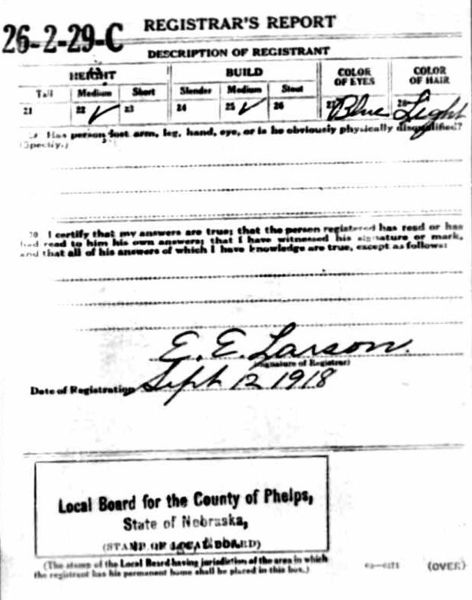 REGISTRAR'S REPORT
26-2-29-C
DESCRIPTION OF REGISTRANT
HEIGHT BUILD COLOR OF EYES COLOR OF HAIR
Tall Medium Short Slender Medium Stout
21 22 ✓ 23 24 25 ✓ 26 27 Blue 28 Light
29 Has person lost arm, leg, hand, eye, or is he obviously physically disqualified?
(Specify.)
30 I certify that my answers are true; that the person registered has read or has
had read to him his own answers; that I have witnessed his signature or mark,
and that all of his answers of which I have knowledge are true, except as follows:
E. E. Larson.
(Signature of Registrar)
Date of Registration Sept 12 1918
Local Board for the County of Phelps,
State of Nebraska,
(STAMP OF LOCAL BOARD)
(The stamp of the Local Board having jurisdiction of the area in which
the registrant has his permanent home shall be placed in this box.)
(OVER)